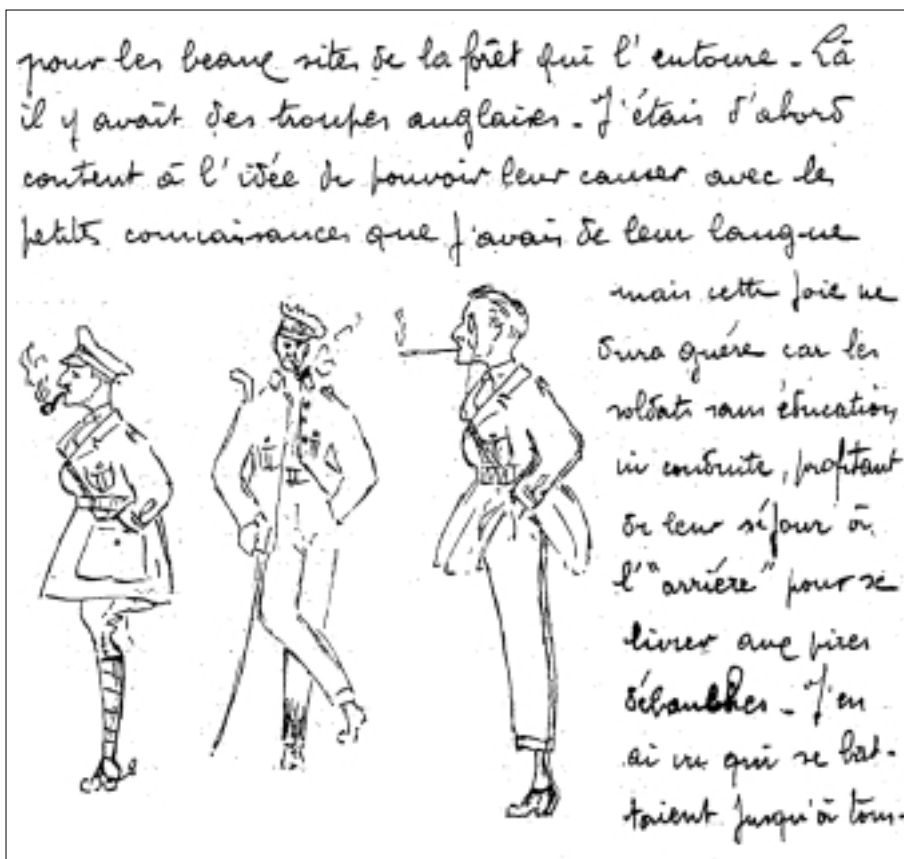 pour les beaux sites de la forêt qui l'entoure - Là
il y avait des troupes anglaises - J'étais d'abord
content à l'idée de pouvoir leur causer avec les
petites connaissances que j'avais de leur langue
mais cette joie ne
dura guère car les
soldats sans éducation,
ni conduite, profitant
de leur séjour à
l'"arrière" pour se
livrer aux pires
débauches - J'en
ai vu qui se bat-
taient jusqu'à tom-